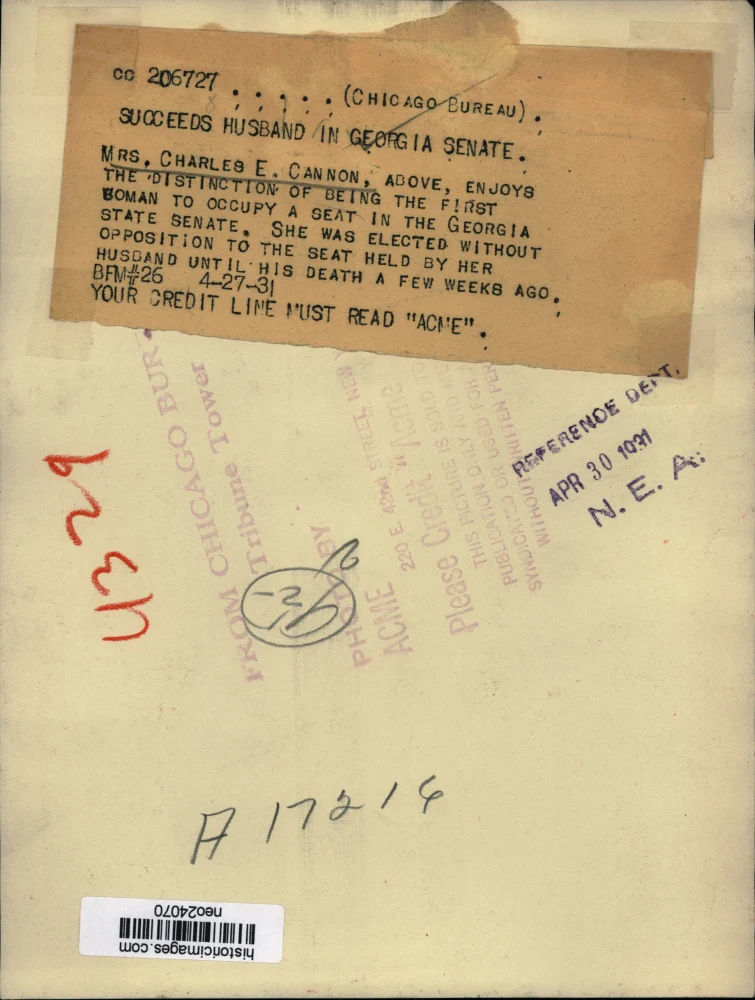 CC 206727 . . . . . (CHICAGO BUREAU).
SUCCEEDS HUSBAND IN GEORGIA SENATE.
MRS. CHARLES E. CANNON, ABOVE, ENJOYS
THE DISTINCTION OF BEING THE FIRST
WOMAN TO OCCUPY A SEAT IN THE GEORGIA
STATE SENATE. SHE WAS ELECTED WITHOUT
OPPOSITION TO THE SEAT HELD BY HER
HUSBAND UNTIL HIS DEATH A FEW WEEKS AGO.
BFM#26 4-27-31
YOUR CREDIT LINE MUST READ "ACME".
FROM CHICAGO
Tribune Tower
PHOTO BY
ACME
220 E. 42nd STREET, NEW
Please Credit "Acme
THIS PICTURE IS SOLD TO
PUBLICATION ONLY AND
SYNDICATED OR USED FOR
WITHOUT WRITTEN PER
REFERENCE DEPT.
APR 30 1931
N. E. A.
A 17214
historicimages.com
neo24070